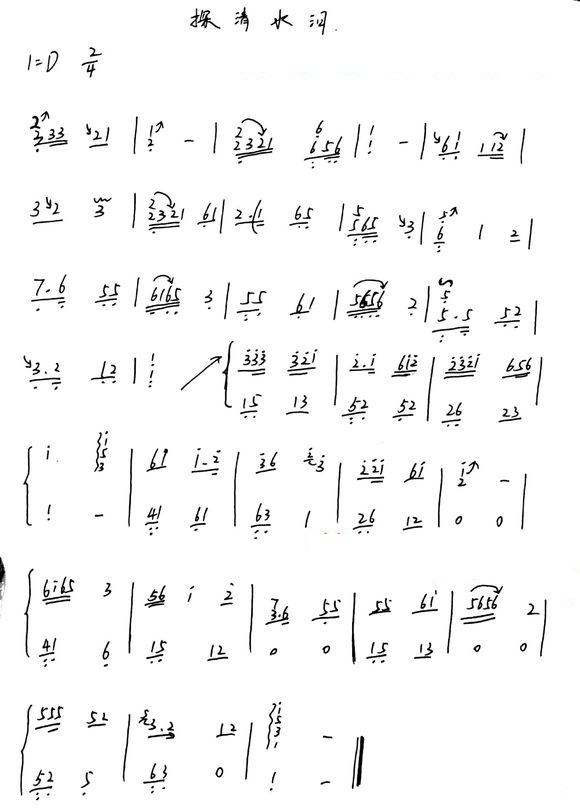 探清水河.
1=D 2/4
2 333 21 | 1 2 - | 2 2321 6 656 | 1 - | 61 112 |
3 2 3 | 2 2321 61 | 2.(1 65 | 5 565 3 | 5 6 1 2 |
7.6 55 | 6165 3 | 55 61 | 5656 2 | 5 5.5 52 |
3.2 12 | 1 1 { 333 321 | 2.1 612 | 2321 656 |
15 13 52 52 26 23
{ 1 1 5 3 | 61 1.2 | 36 2 3 | 221 61 | 1 2 - |
1 - 41 61 63 1 26 12 0 0
{ 6165 3 | 56 1 2 | 7 3.6 55 | 55 61 | 5656 2 |
41 6 15 12 0 0 15 13 0 0
{ 555 52 | 5 3.2 12 | 1 5 3 1 - ‖
52 5 63 0 1 -